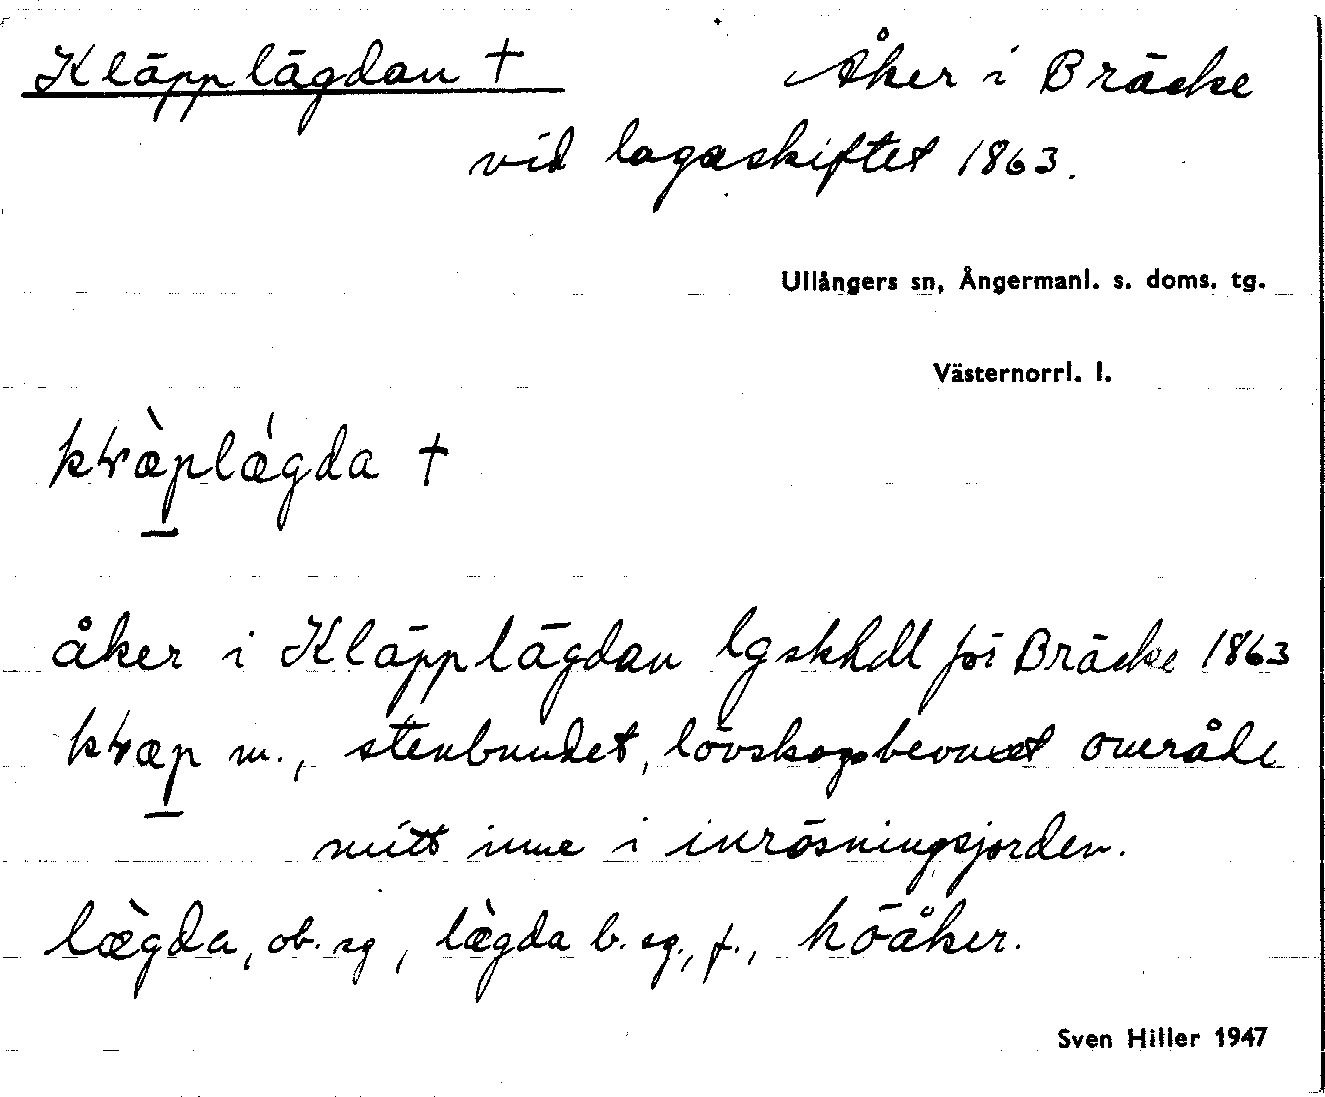 Kläpplägdan † Åker i Bräcke
vid lagaskiftet 1863.
Ullångers sn, Ångermanl. s. doms. tg.
Västernorrl. l.
åker i Kläpplägdan lgskhdl för Bräcke 1863
m., stenbundet, lövskogsbevuxet område
mitt inne i inrösningsjorden.
læ̀gda, ob. sg, læ̀gda b. sg., f., höåker.
Sven Hiller 1947